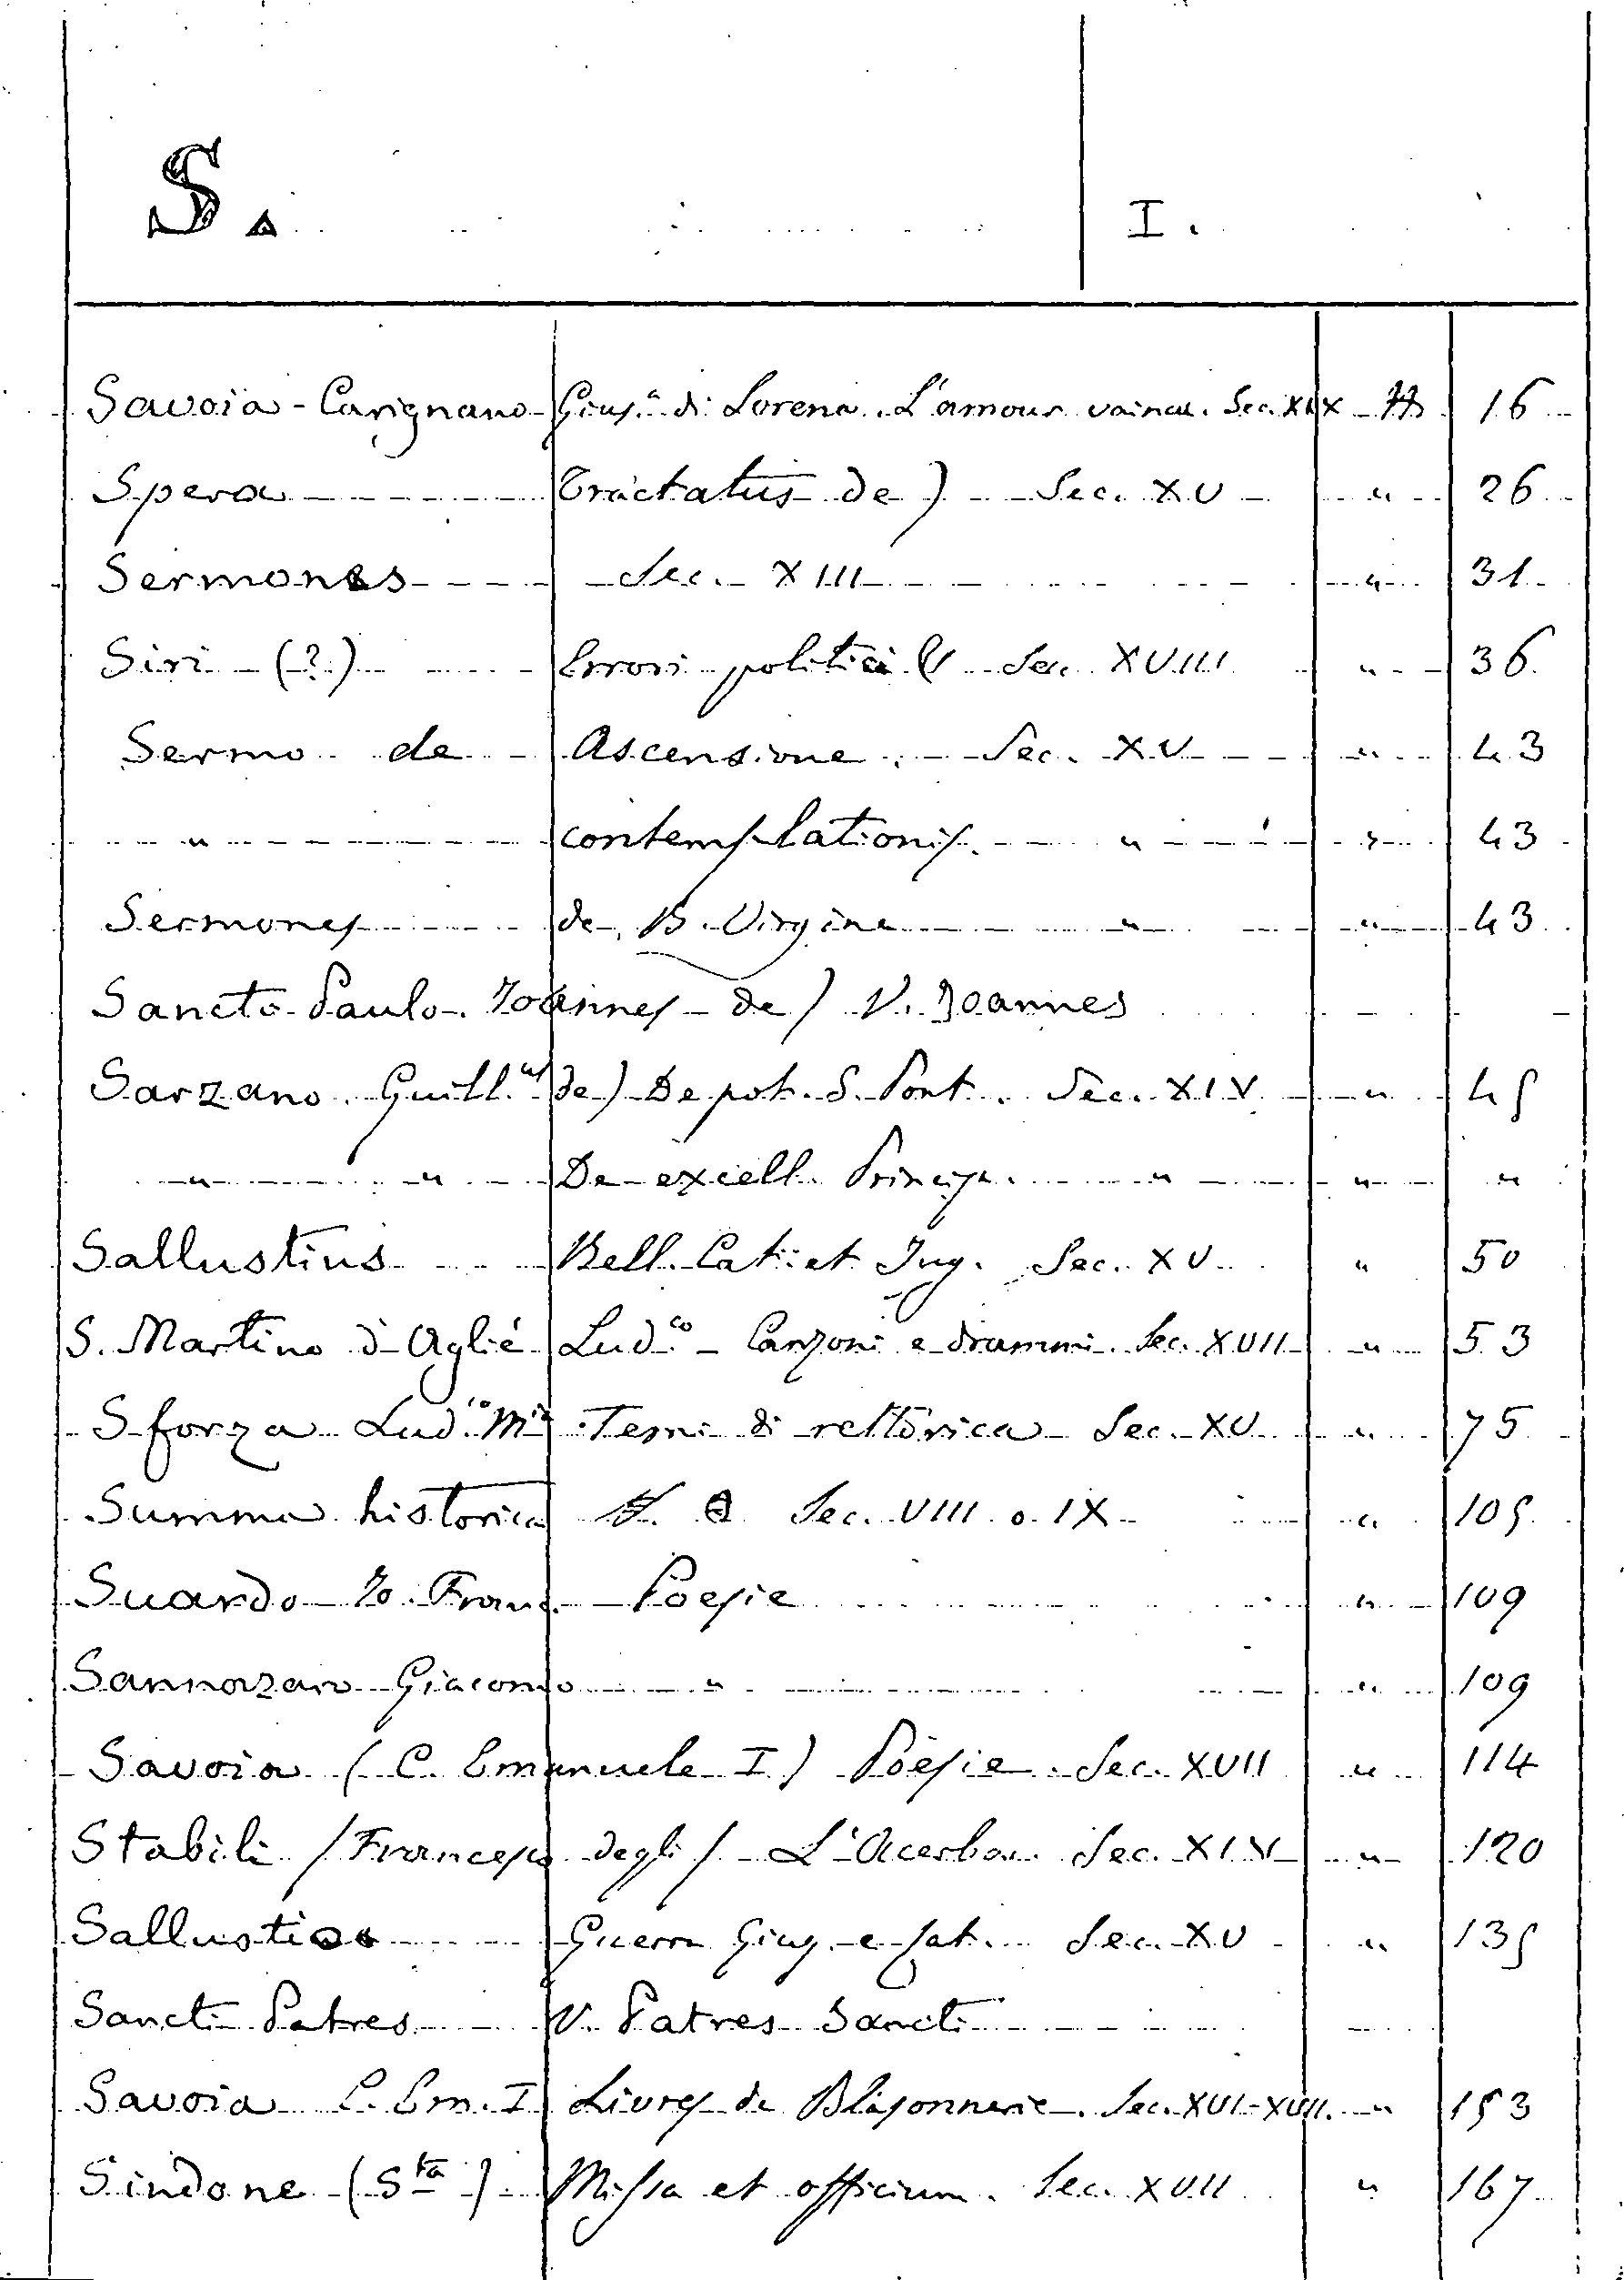 S. I.
Savoia-Carignano Gius.ª di Lorena. L'amour vaincu. Sec. XIX 16
Spera Tractatus de) Sec. XV " 26
Sermones Sec. XIII " 31
Siri (?) Errori politici Sec. XVIII " 36
Sermo de Ascensione. Sec. XV " 43
" contemplationis. " " 43
Sermones de B. Virgine " " 43
Sancto Paulo. Joannes de) V. Joannes
Sarzano. Guill.us de) De pot. S. Pont. Sec. XIV " 45
" " De excell. Princip. " " "
Sallustius Bell. Cat. et Jug. Sec. XV " 50
S. Martino d'Aglié Lud.co Canzoni e drammi. Sec. XVII " 53
Sforza Lud.co M.ª Temi di rettorica Sec. XV " 75
Summa historica Sec. VIII o IX " 105
Suardo Jo. Franc. Poesie " 109
Sannazaro Giacomo " " 109
Savoia (C. Emanuele I) Poesie. Sec. XVII " 114
Stabili (Francesco degli) L'Acerba. Sec. XIV " 120
Sallustio Guerra Giug. e Cat. Sec. XV " 135
Sancti Patres V. Patres Sancti
Savoia C. Em. I Livres de Blasonnerie. Sec. XVI-XVII. " 153
Sindone (Sta) Missa et officium. Sec. XVII " 167